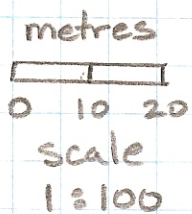 metres
0 10 20
scale
1:100